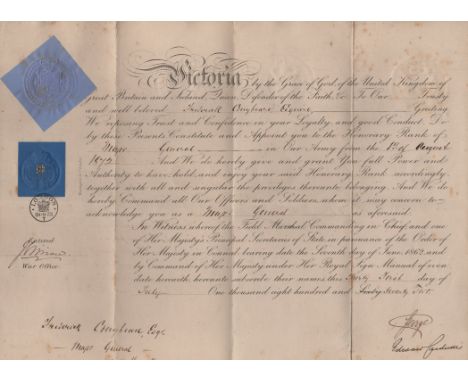 Victoria by the Grace of God of the United Kingdom of
Great Britain and Ireland, Queen Defender of the Faith &c To Our Trusty
and well beloved Frederick Esquire Greeting
We reposing Trust and Confidence in your Loyalty and good Conduct Do
by these Presents Constitute and Appoint you to the Honorary Rank of
Major General in Our Army from the 1st of August
1872 And We do hereby give and grant You full Power and
Authority to have hold and enjoy your said Honorary Rank accordingly
together with all and singular the privileges thereunto belonging And We do
hereby Command all Our Officers and Soldiers whom it may concern to
acknowledge you as a Major General as aforesaid.
In Witness whereof the Field Marshal Commanding in Chief and one
of Her Majesty's Principal Secretaries of State in pursuance of the Order of
Her Majesty in Council bearing date the Seventh day of June 1862 and
by Command of Her Majesty under Her Royal Sign Manual of even
date herewith hereunto subscribe their names this Thirty First day of
July One thousand eight hundred and Seventy Two.
War Office
Frederick Esqre
Major General
George
Edward Cardwell